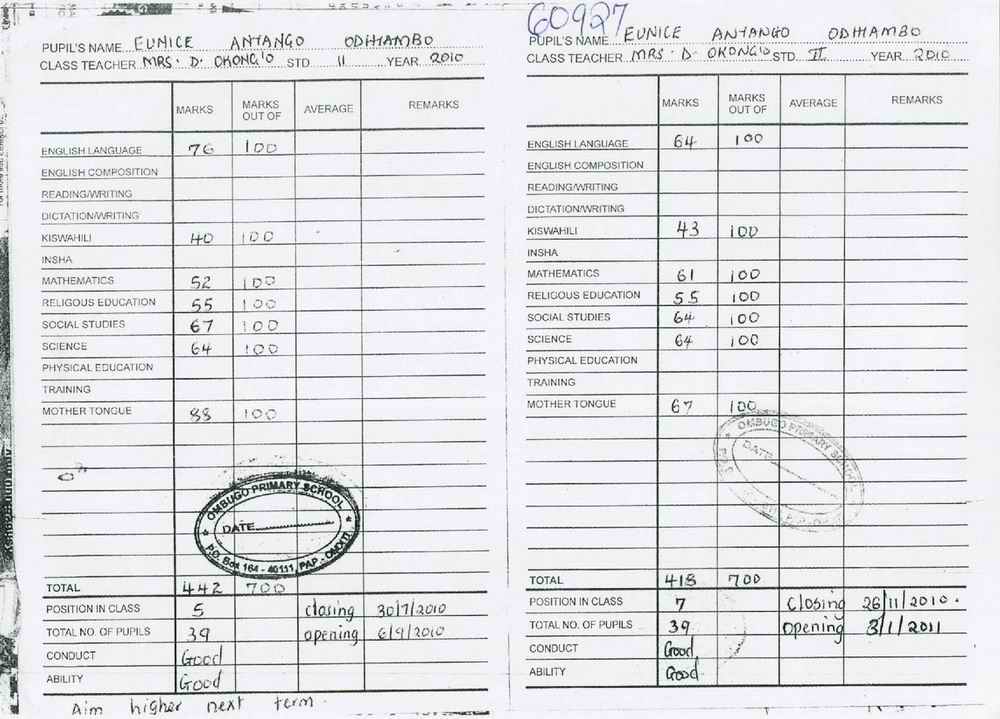 PUPIL'S NAME EUNICE ANYANGO ODHIAMBO
CLASS TEACHER MRS. D. OKONG'O STD 11 YEAR 2010
MARKS MARKS OUT OF AVERAGE REMARKS
ENGLISH LANGUAGE 76 100
ENGLISH COMPOSITION
READING/WRITING
DICTATION/WRITING
KISWAHILI 40 100
INSHA
MATHEMATICS 52 100
RELIGOUS EDUCATION 55 100
SOCIAL STUDIES 67 100
SCIENCE 64 100
PHYSICAL EDUCATION
TRAINING
MOTHER TONGUE 88 100
OMBUGO PRIMARY SCHOOL
DATE
P.O. Box 164 - 40111, PAP - ONDITI
TOTAL 442 700
POSITION IN CLASS 5 closing 30/7/2010
TOTAL NO. OF PUPILS 39 opening 6/9/2010
CONDUCT Good
ABILITY Good
Aim higher next term.
60927
PUPIL'S NAME EUNICE ANYANGO ODHIAMBO
CLASS TEACHER MRS. D. OKONG'O STD II YEAR 2010
MARKS MARKS OUT OF AVERAGE REMARKS
ENGLISH LANGUAGE 64 100
ENGLISH COMPOSITION
READING/WRITING
DICTATION/WRITING
KISWAHILI 43 100
INSHA
MATHEMATICS 61 100
RELIGOUS EDUCATION 55 100
SOCIAL STUDIES 64 100
SCIENCE 64 100
PHYSICAL EDUCATION
TRAINING
MOTHER TONGUE 67 100
OMBUGO PRIMARY SCHOOL
DATE
TOTAL 418 700
POSITION IN CLASS 7 Closing 26/11/2010.
TOTAL NO. OF PUPILS 39 opening 3/1/2011
CONDUCT Good
ABILITY Good